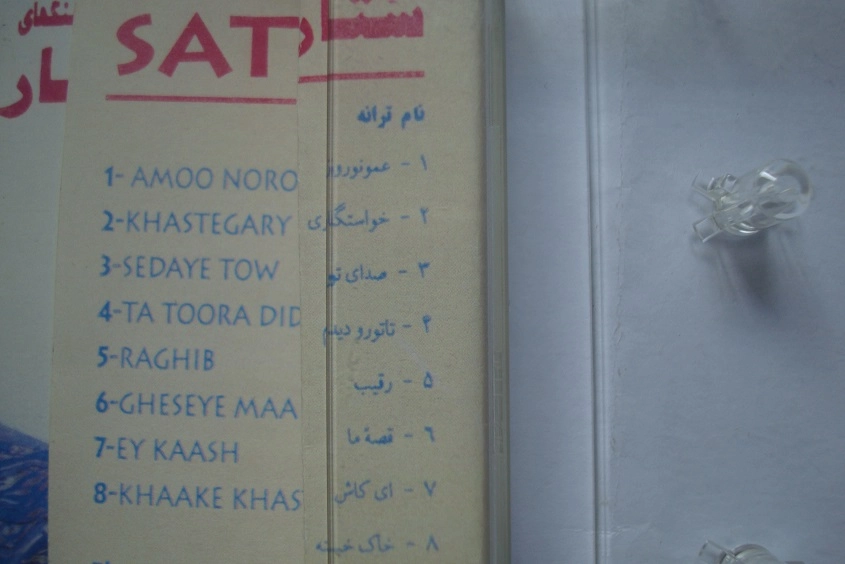 نگهای
ار
SAT
نام ترانه
1- AMOO NORO
۱ - عمونوروز
2-KHASTEGARY
۲ - خواستگاری
3-SEDAYE TOW
۳ - صدای تو
4-TA TOORA DID
۴ - تاتورو دیدم
5-RAGHIB
۵ - رقیب
6-GHESEYE MAA
۶ - قصهٔ ما
7-EY KAASH
۷ - ای کاش
8-KHAAKE KHAS
۸ - خاک خسته